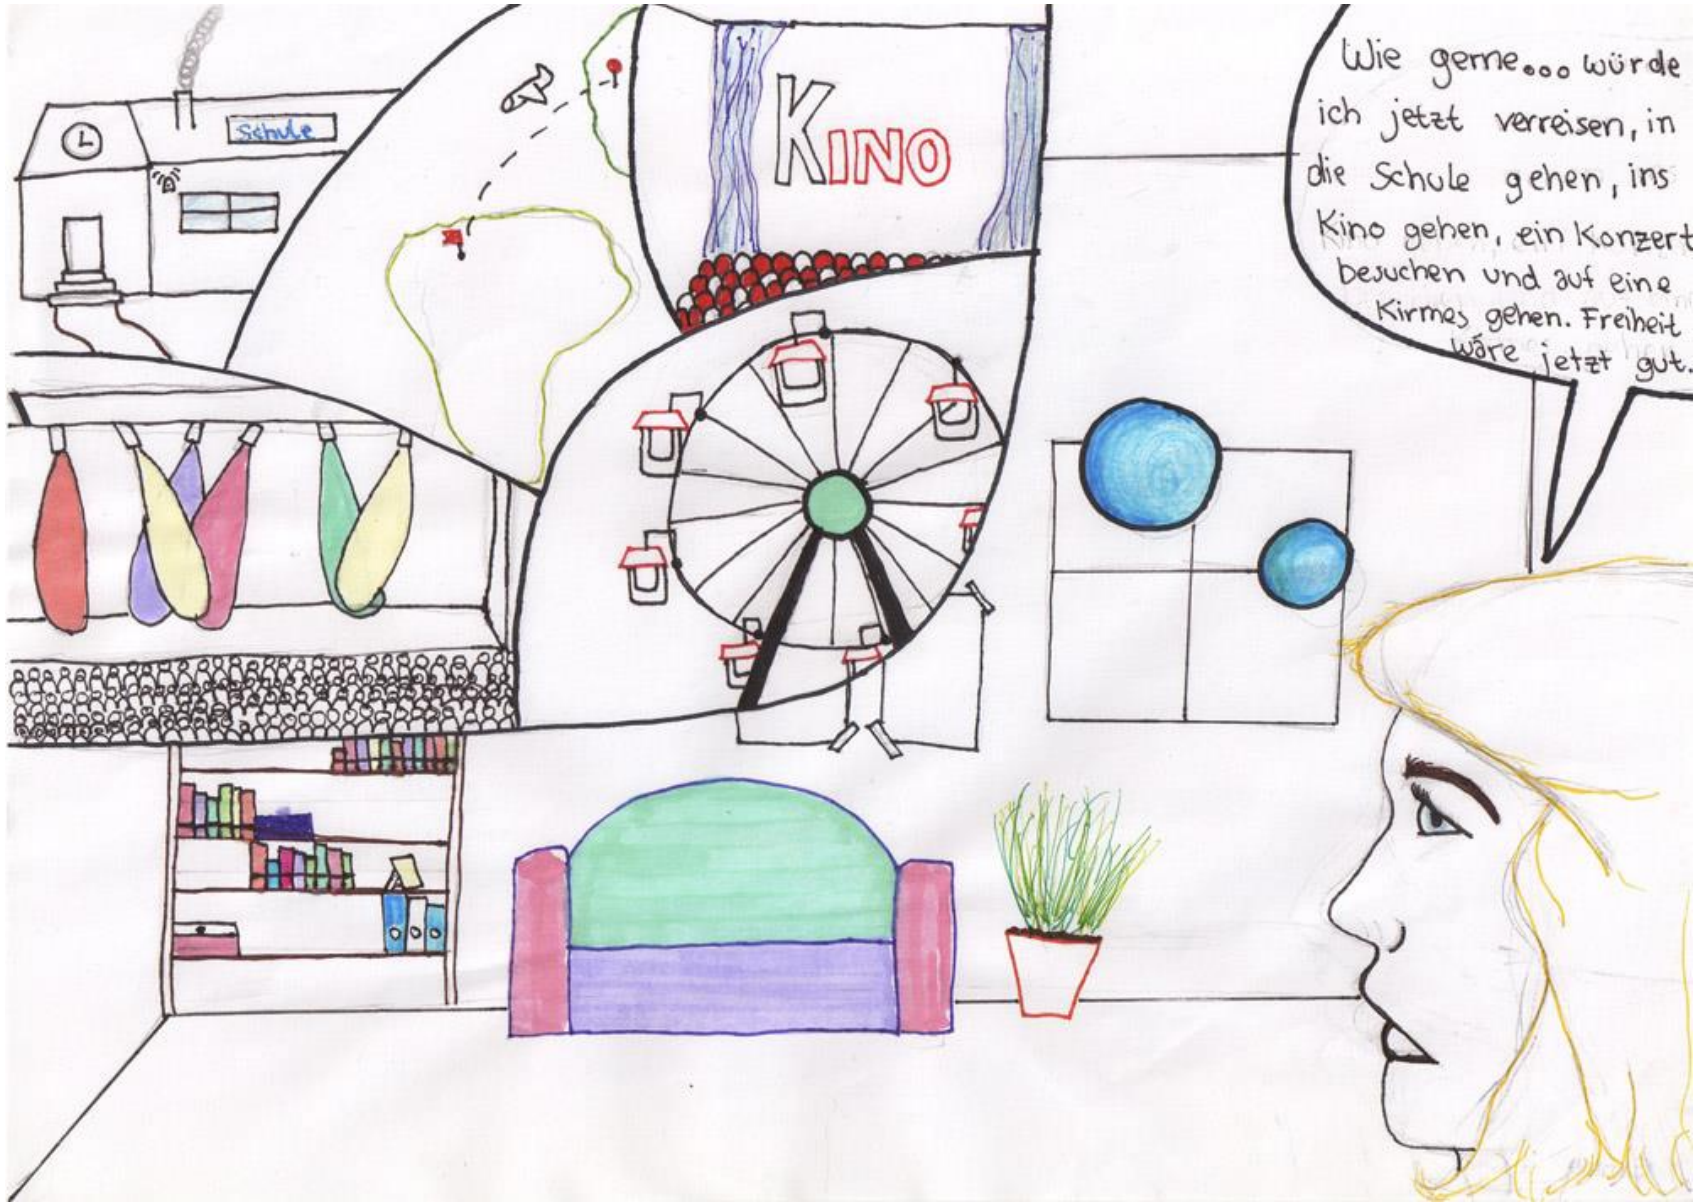 Schule
KINO
Wie gerne... würde
ich jetzt verreisen, in
die Schule gehen, ins
Kino gehen, ein Konzert
besuchen und auf eine
Kirmes gehen. Freiheit
wäre jetzt gut.